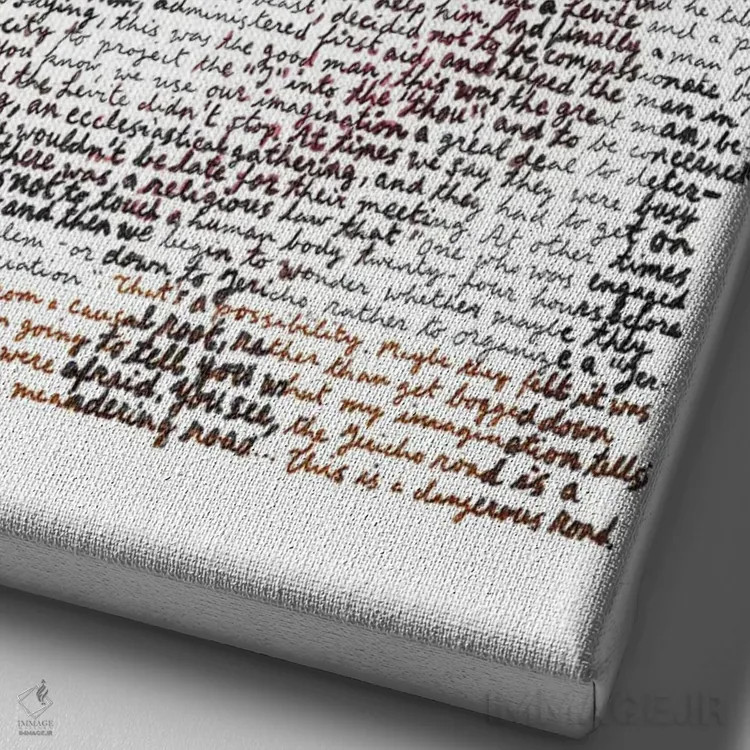 nd he ta
a Levite and a p
help him. And finally a man o
beast, decided not to be compassionate b
administered first aid, and helped the man in
saying, this was the good man, this was the great man, be-
city to project the "I" into the "thou," and to be concerned
you know, we use our imagination a great deal to deter-
d the Levite didn't stop. At times we say they were busy
g, an ecclesiastical gathering, and they had to get on
wouldn't be late for their meeting. At other times,
there was a religious law that "one who was engaged
s not to touch a human body twenty-four hours before
and then we begin to wonder whether maybe they
lem - or down to Jericho rather to organize a "Jer-
iation." That's a possibility. Maybe they felt it was
om a causal root, rather than get bogged down
n going to tell you what my imagination tells
were afraid. You see, the Jericho road is a
meandering road... This is a dangerous road.
IMMAGE
IMMAGE.IR
IMMAGE.IR